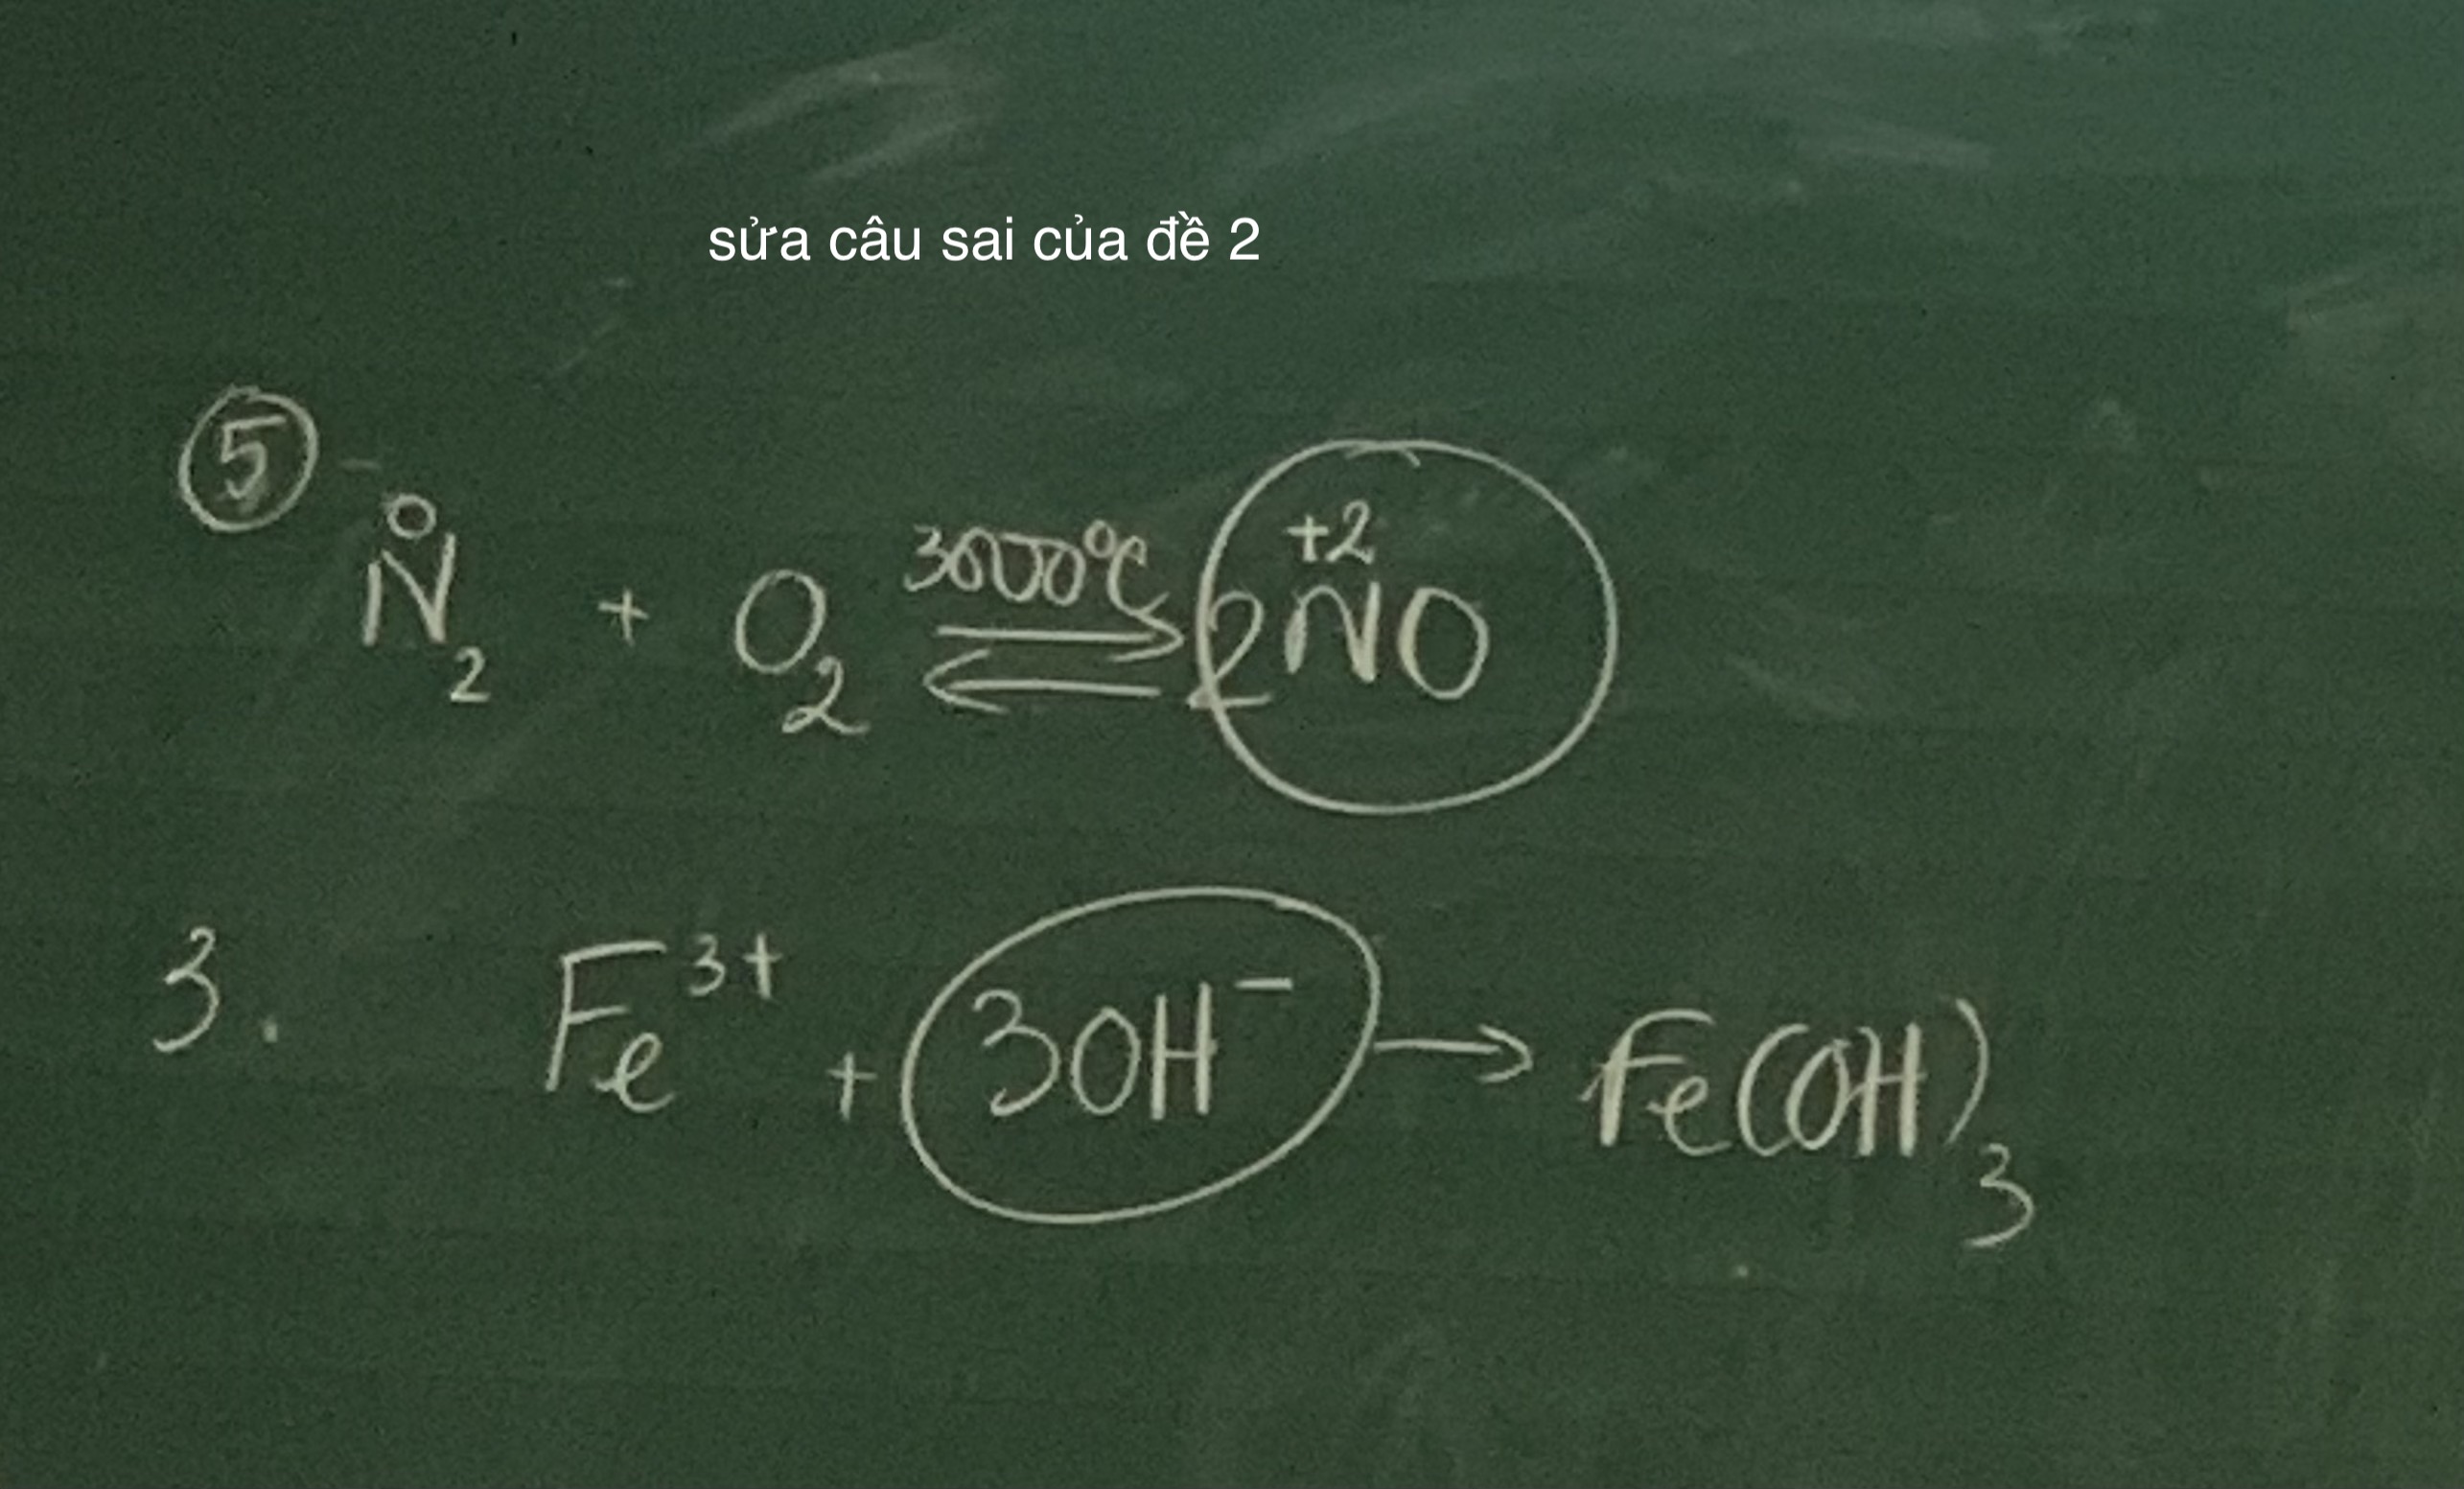 sửa câu sai của đề 2
5
0 +2
N₂ + O₂ 3000°C ⇌ 2NO
3. Fe³⁺ + 3OH⁻ → Fe(OH)₃